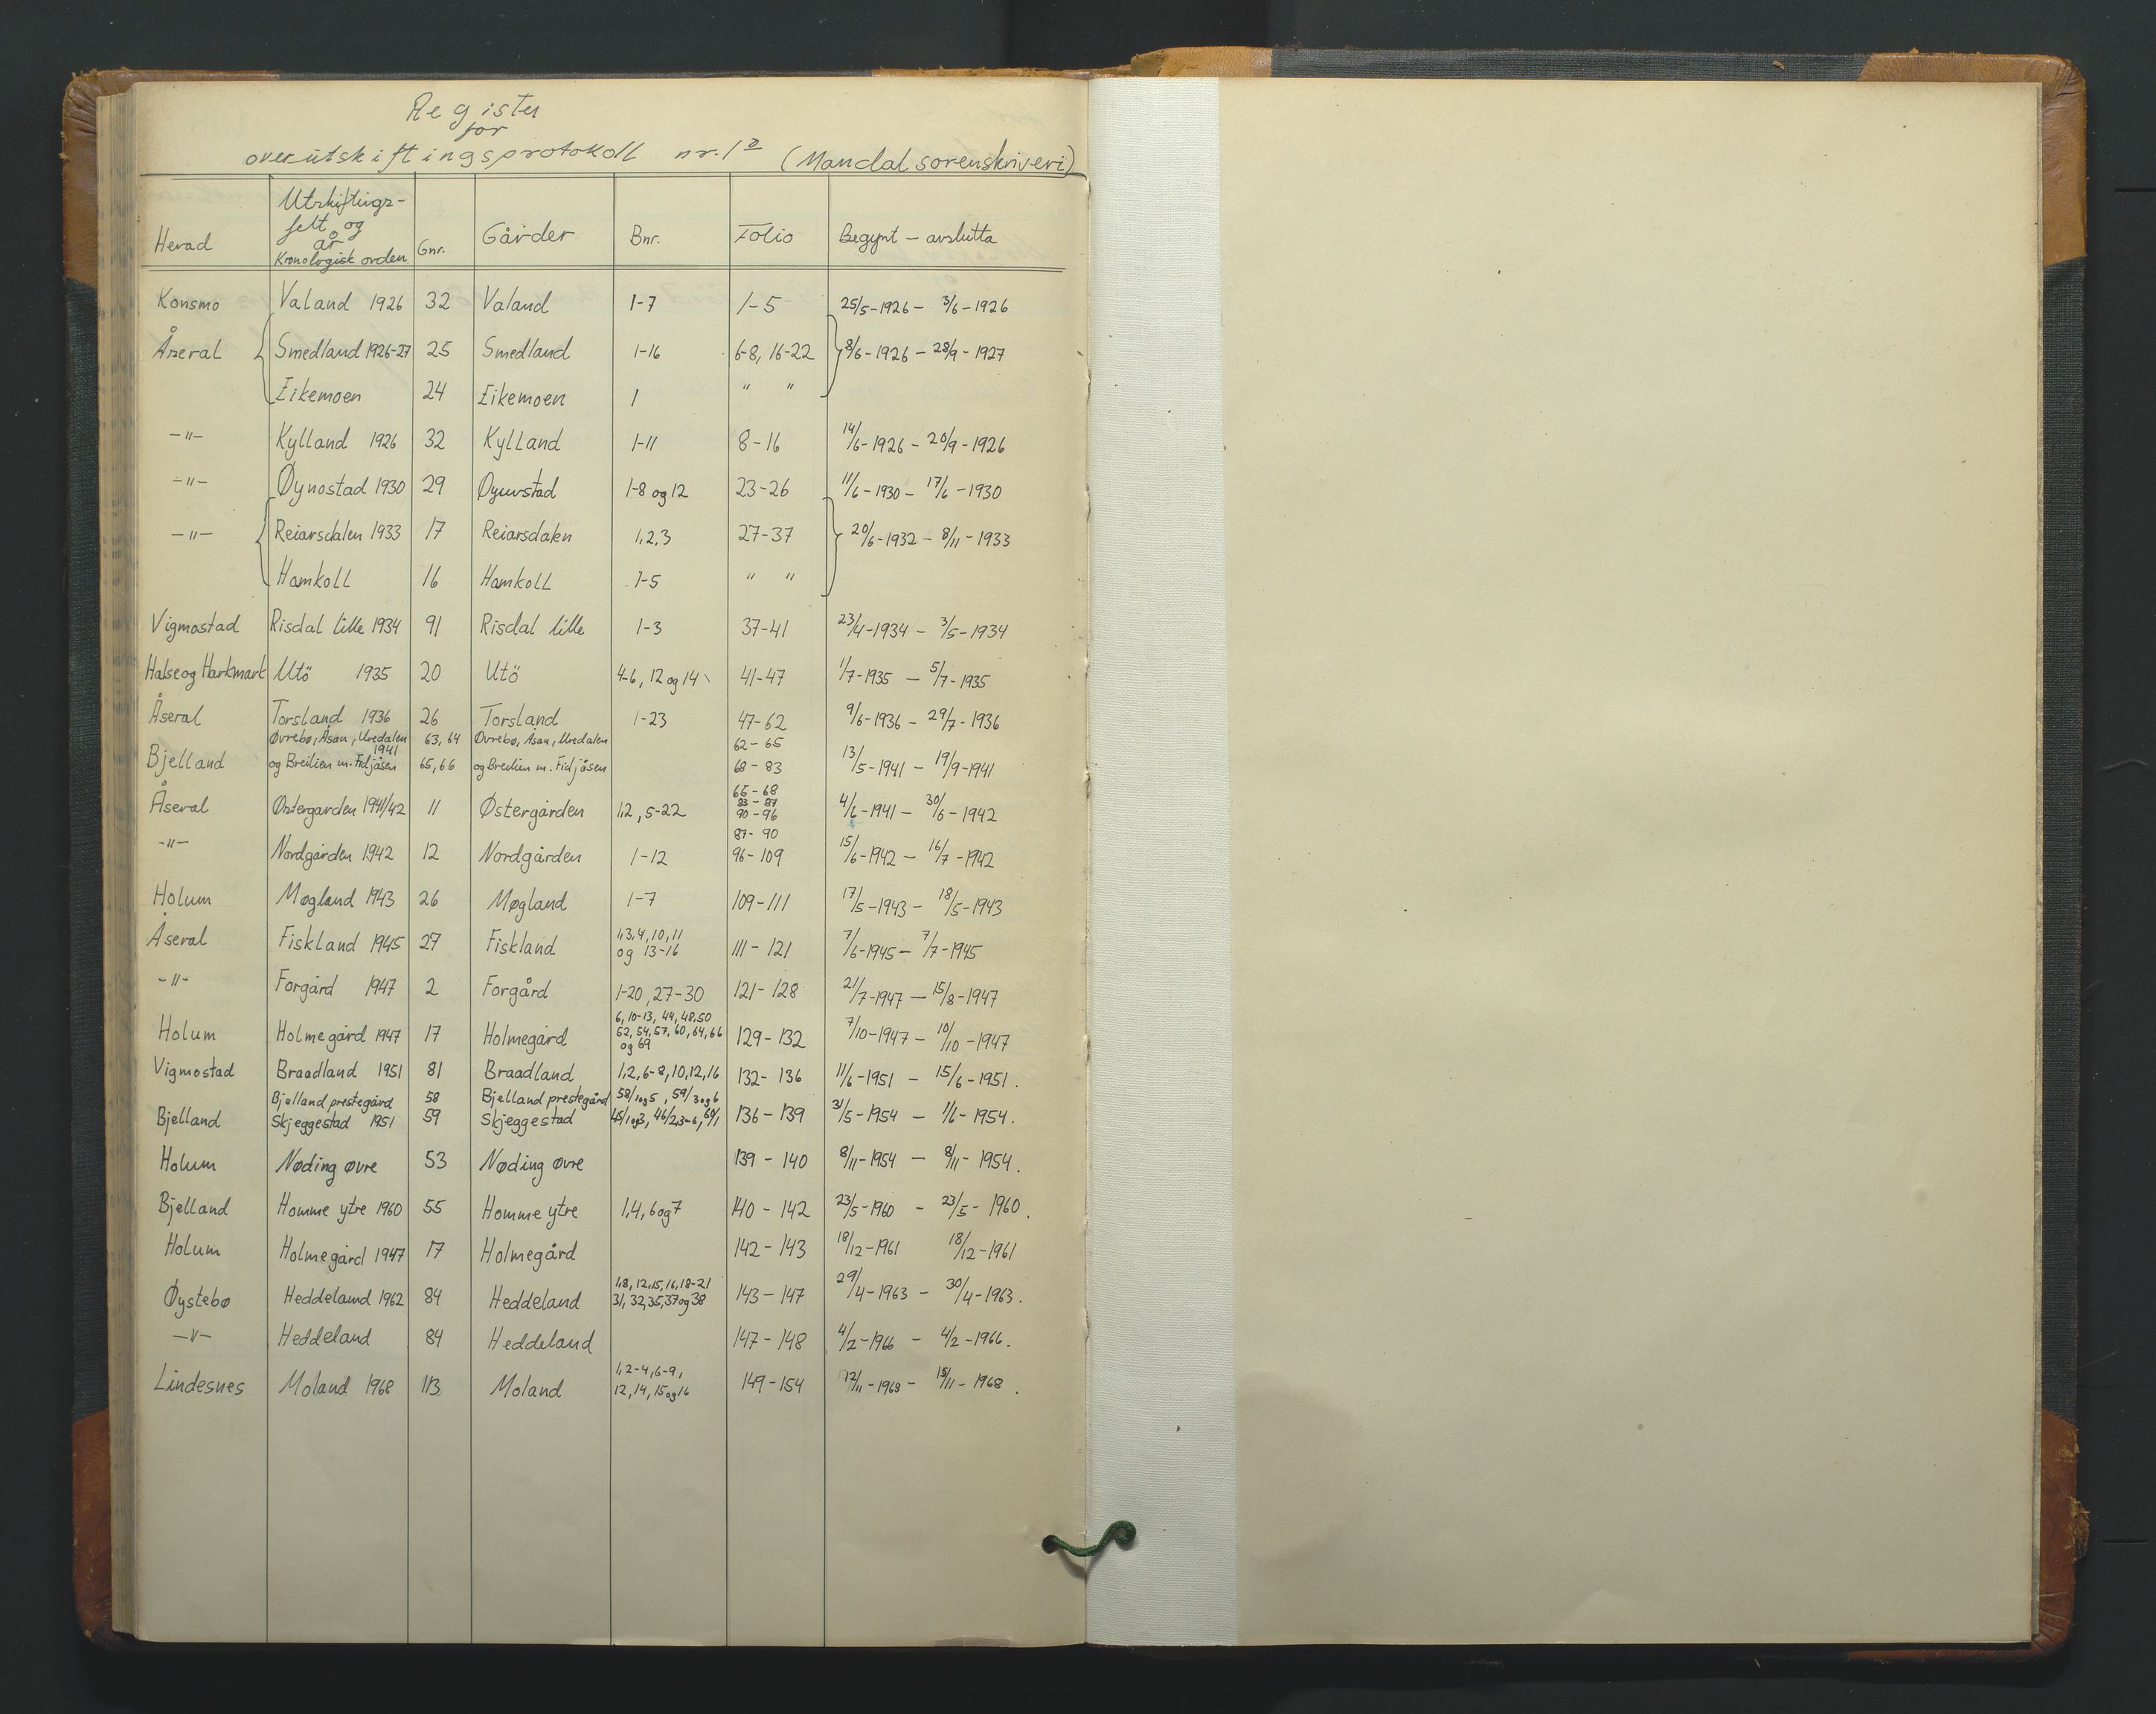 Register
for
overutskiftingsprotokoll nr. 1 (Mandal sorenskriveri)
Herad Utskiftings- felt og år Kronologisk orden. Gnr. Gårder Bnr. Folio Begynt - avslutta
Konsmo Valand 1926 32 Valand 1-7 1-5 25/5-1926 - 3/6-1926
Åseral Smedland 1926-27 25 Smedland 1-16 6-8, 16-22 8/6-1926 - 28/9-1927
Eikemoen 24 Eikemoen 1 " "
-"- Kylland 1926 32 Kylland 1-11 8-16 14/6-1926 - 20/9-1926
-"- Øynostad 1930 29 Øyuvstad 1-8 og 12 23-26 11/6-1930 - 17/6-1930
-"- Reiarsdalen 1933 17 Reiarsdalen 1,2,3 27-37 20/6-1932 - 8/11-1933
Hamkoll 16 Hamkoll 1-5 " "
Vigmostad Risdal lille 1934 91 Risdal lille 1-3 37-41 23/4-1934 - 3/5-1934
Halse og Harkmark Utö 1935 20 Utö 4-6, 12 og 14 41-47 1/7-1935 - 5/7-1935
Åseral Torsland 1936 26 Torsland 1-23 47-62 9/6-1936 - 29/7-1936
Øvrebø, Åsan, Uredalen 1941 63, 64 Øvrebø, Åsan, Uredalen 62-65
Bjelland og Breilien m. Fidjåsen 65, 66 og Breilien m. Fidjåsen 68-83 13/5-1941 - 19/9-1941
65-68
83-87
Åseral Østergarden 1941/42 11 Østergården 1,2, 5-22 90-96 4/6-1941 - 30/6-1942
87-90
-"- Nordgården 1942 12 Nordgården 1-12 96-109 15/6-1942 - 16/7-1942
Holum Møgland 1943 26 Møgland 1-7 109-111 17/5-1943 - 18/5-1943
Åseral Fiskland 1945 27 Fiskland 1,3,4,10,11 og 13-16 111-121 7/6-1945 - 7/7-1945
-"- Forgård 1947 2 Forgård 1-20, 27-30 121-128 21/7-1947 - 15/8-1947
Holum Holmegård 1947 17 Holmegård 6, 10-13, 44, 48,50 52, 54, 57, 60, 64, 66 og 69 129-132 7/10-1947 - 10/10-1947
Vigmostad Braadland 1951 81 Braadland 1,2,6-8,10,12,16 132-136 11/6-1951 - 15/6-1951.
Bjelland prestegård 58 Bjelland prestegård 58/1 og 5, 59/3 og 6
Bjelland Skjeggestad 1951 59 Skjeggestad 45/1 og 3, 46/2,3-6, 136-139 31/5-1954 - 1/6-1954.
Holum Nøding øvre 53 Nøding øvre 139-140 8/11-1954 - 8/11-1954.
Bjelland Homme ytre 1960 55 Homme ytre 1,4, 6 og 7 140-142 23/5-1960 - 23/5-1960.
Holum Holmegård 1947 17 Holmegård 142-143 18/12-1961 18/12-1961
Øystebø Heddeland 1962 84 Heddeland 1,8, 12,15, 16, 18-21 31, 32,35,37 og 38 143-147 29/4-1963 - 30/4-1963.
-"- Heddeland 84 Heddeland 147-148 4/2-1966 - 4/2-1966.
Lindesnes Moland 1968 113 Moland 1,2-4,6-9, 12, 14, 15 og 16 149-154 12/11-1968 - 15/11-1968.